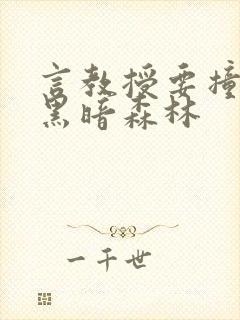 言教授要撞
黑暗森林
一千世